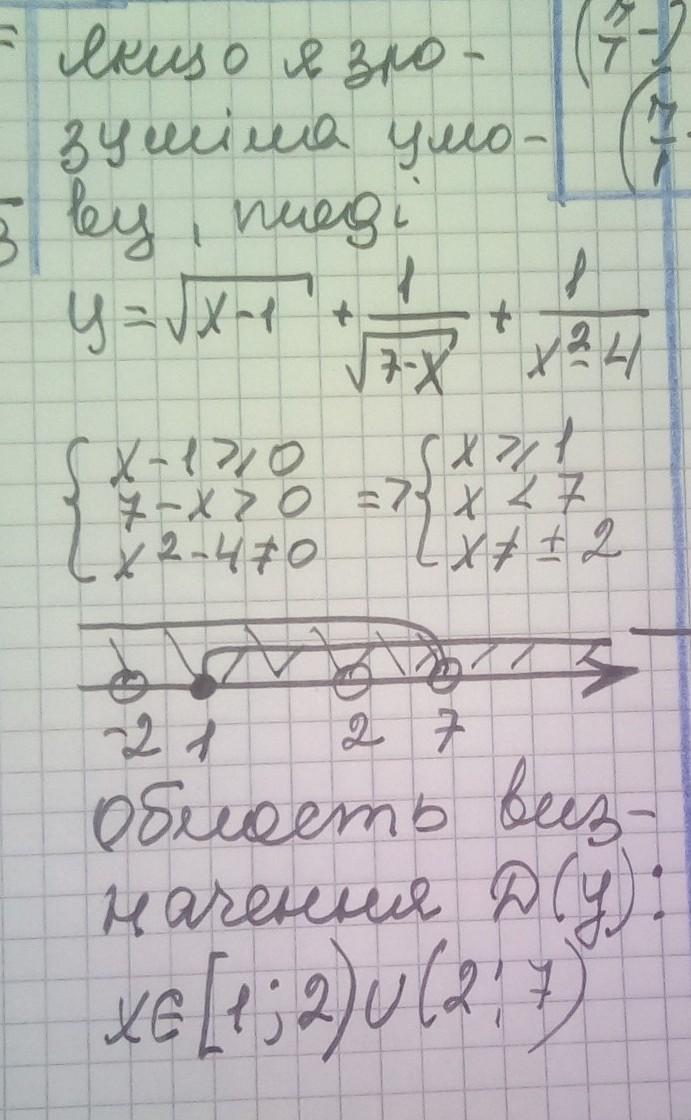 якщо я зро-
зуміла умо-
ву, тоді
y = √(x-1) + 1/√(7-x) + 1/(x²-4)
{ x-1⩾0 => { x⩾1
7-x>0 x<7
x²-4≠0 x≠±2
-2 1 2 7
область виз-
начення D(y):
x∈[1;2)∪(2;7)